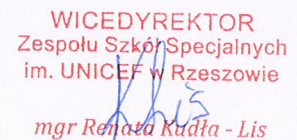 WICEDYREKTOR
Zespołu Szkół Specjalnych
im. UNICEF w Rzeszowie
mgr Renata Kudła - Lis